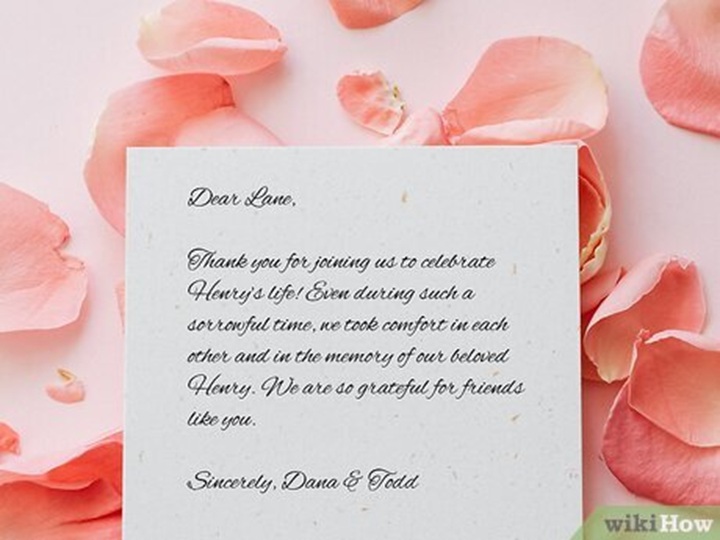 Dear Lane,
Thank you for joining us to celebrate
Henry's life! Even during such a
sorrowful time, we took comfort in each
other and in the memory of our beloved
Henry. We are so grateful for friends
like you.
Sincerely, Dana & Todd
wikiHow